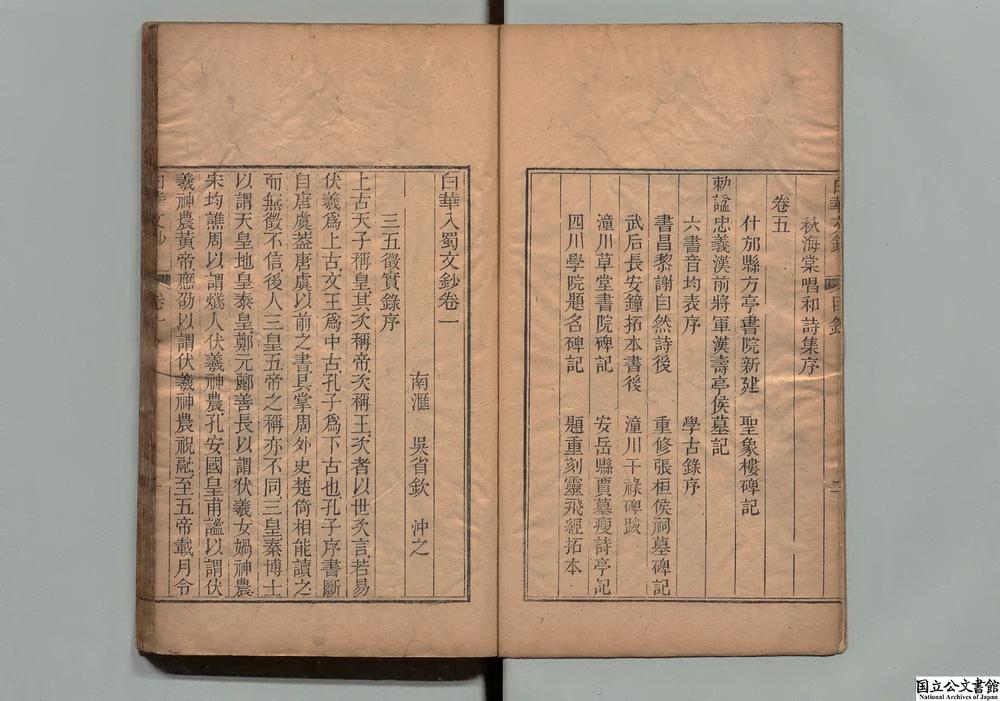 秋海棠唱和詩集序
卷五
什邡縣方亭書院新建　聖象樓碑記
勅謚忠義漢前將軍漢壽亭侯墓記
六書音均表序　學古錄序
書昌黎謝自然詩後　重修張桓侯祠墓碑記
武后長安鐘拓本書後　潼川干祿碑跋
潼川草堂書院碑記　安岳縣賈墓瘦詩亭記
四川學院題名碑記　題重刻靈飛經拓本
白華入蜀文鈔卷一
南滙　吳省欽　沖之
三五徵實錄序
上古天子稱皇其次稱帝次稱王次者以世次言若易
伏羲爲上古文王爲中古孔子爲下古也孔子序書斷
自唐虞蓋唐虞以前之書具掌周外史楚倚相能讀之
而無徵不信後人三皇五帝之稱亦不同三皇秦博士
以謂天皇地皇泰皇鄭元酈善長以謂伏羲女媧神農
宋均譙周以謂燧人伏羲神農孔安國皇甫謐以謂伏
羲神農黃帝應劭以謂伏羲神農祝融至五帝載月令
国立公文書館
National Archives of Japan